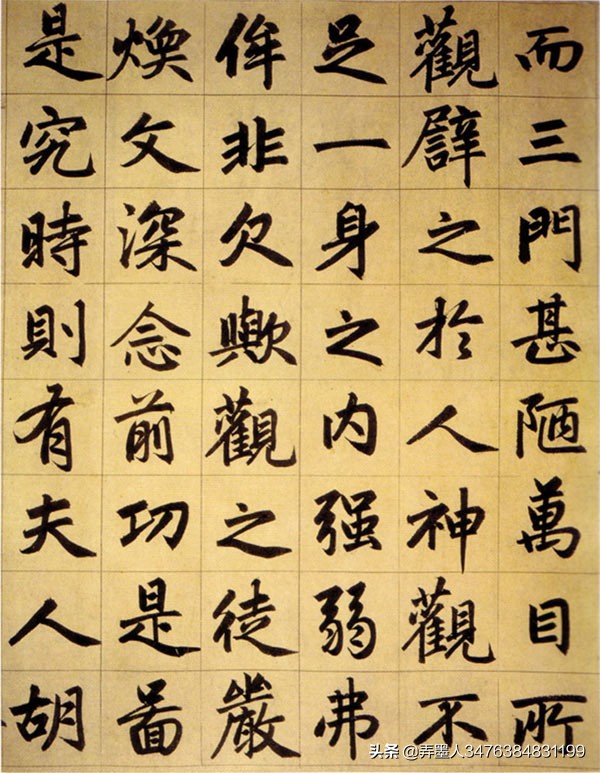 而三門甚陋萬目所
觀譬之於人神觀不
足一身之內强弱弗
侔非欠歟觀之徒嚴
煥文深念前功是啚
是究時則有夫人胡
头条 @弄墨人3476384831199